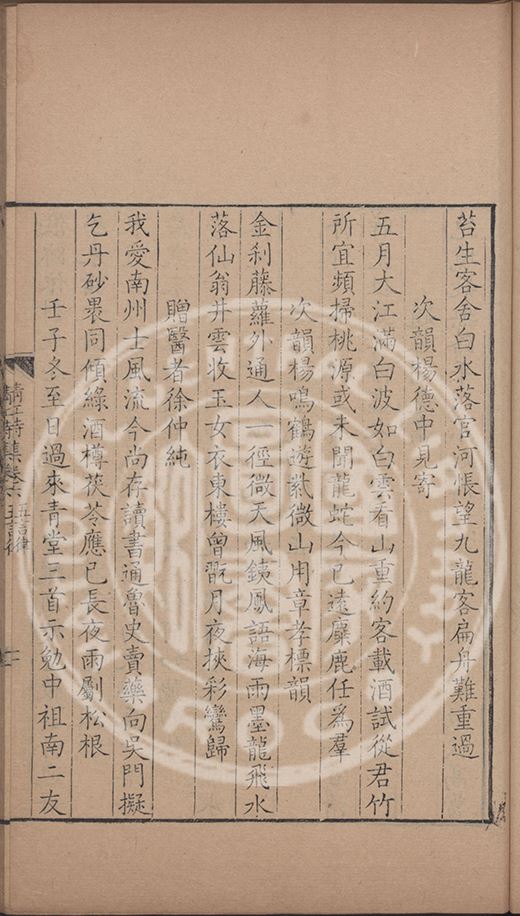 苔生客舍白水落官河悵望九龍客扁舟難重過
次韻楊德中見寄
五月大江滿白波如白雲看山重約客載酒試從君竹
所宜頻掃桃源或未聞龍蛇今已遠麋鹿任為羣
次韻楊鳴鶴遊紫微山用章孝標韻
金剎藤蘿外通人一徑微天風鐵鳳語海雨墨龍飛水
落仙翁井雲收玉女衣東樓曾翫月夜挾彩鸞歸
贈醫者徐仲純
我愛南州士風流今尚存讀書通魯史賣藥向吳門擬
乞丹砂畏同傾綠酒樽茯苓應已長夜雨劚松根
壬子冬至日過來青堂三首示勉中祖南二友
五言律